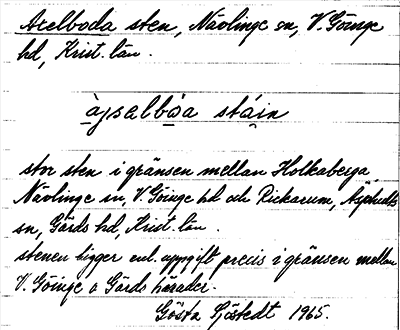 Axelboda sten, Nävlinge sn, V. Göinge
hd, Krist. län.
àjsəlbòa stáin
stor sten i gränsen mellan Holkaberga
Nävlinge sn, V. Göinge hd och Rickarum, Äsphults
sn, Gärds hd, Krist. län.
stenen ligger enl. uppgift precis i gränsen mellan
V. Göinge o Gärds härader.
Gösta Sjöstedt 1965.